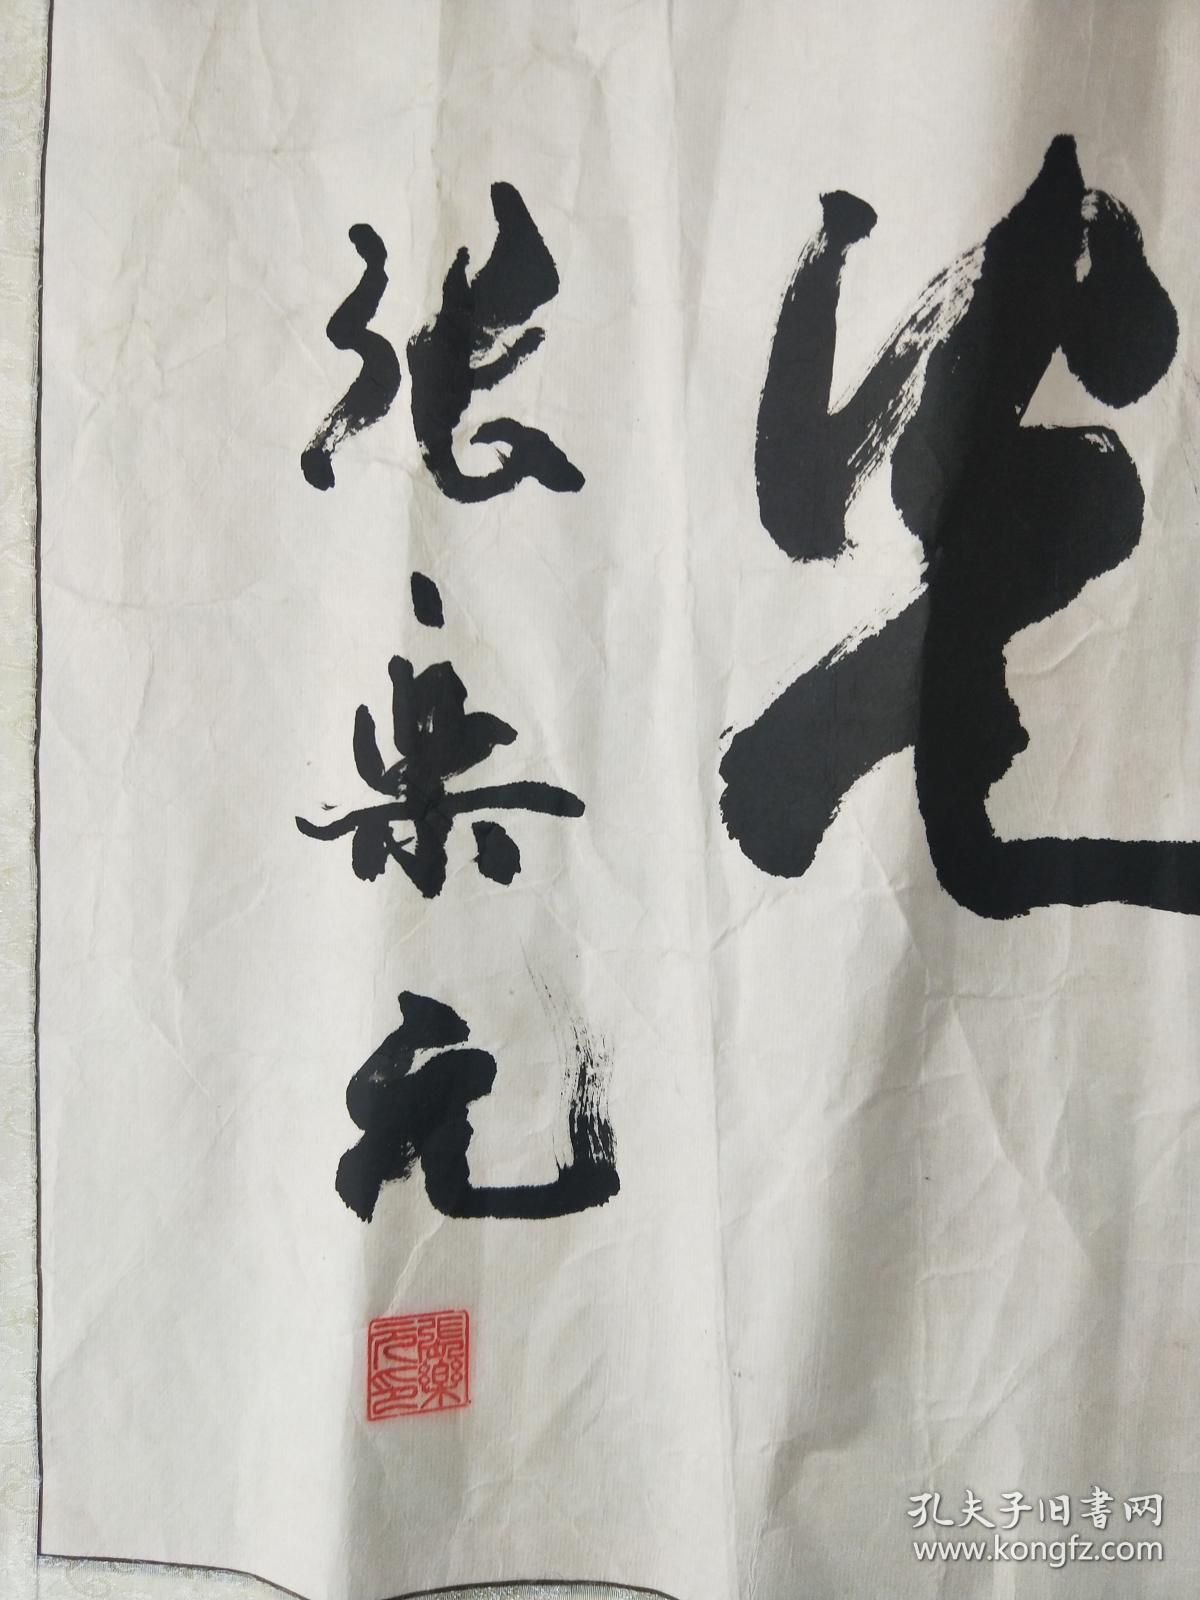 张乐元
張樂元印
孔夫子旧書网
www.kongfz.com